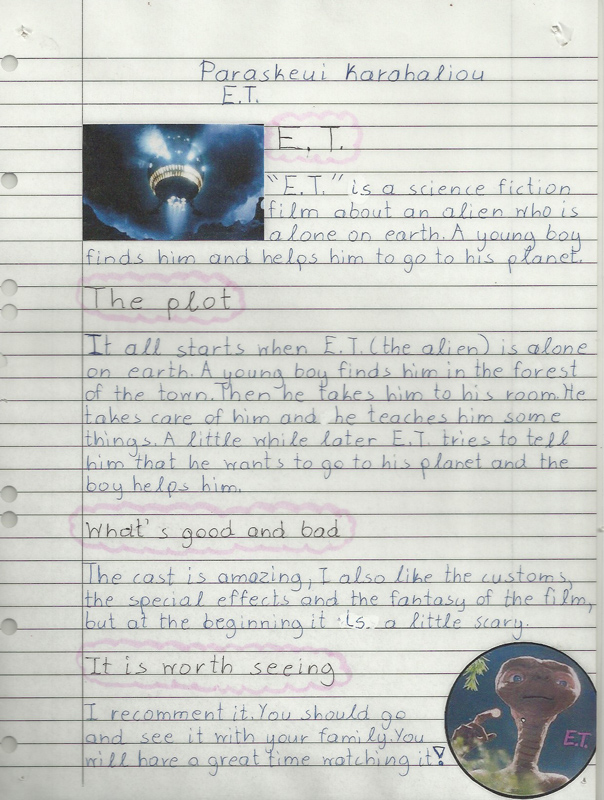 Paraskeui Karahaliou
E.T.
E.T.
"E.T." is a science fiction
film about an alien who is
alone on earth. A young boy
finds him and helps him to go to his planet.
The plot
It all starts when E.T. (the alien) is alone
on earth. A young boy finds him in the forest
of the town. Then he takes him to his room. He
takes care of him and he teaches him some
things. A little while later E.T. tries to tell
him that he wants to go to his planet and the
boy helps him.
What's good and bad
The cast is amazing, I also like the customs,
the special effects and the fantasy of the film,
but at the beginning it is a little scary.
It is worth seeing
I recomment it. You should go
and see it with your family. You
will have a great time watching it!
E.T.